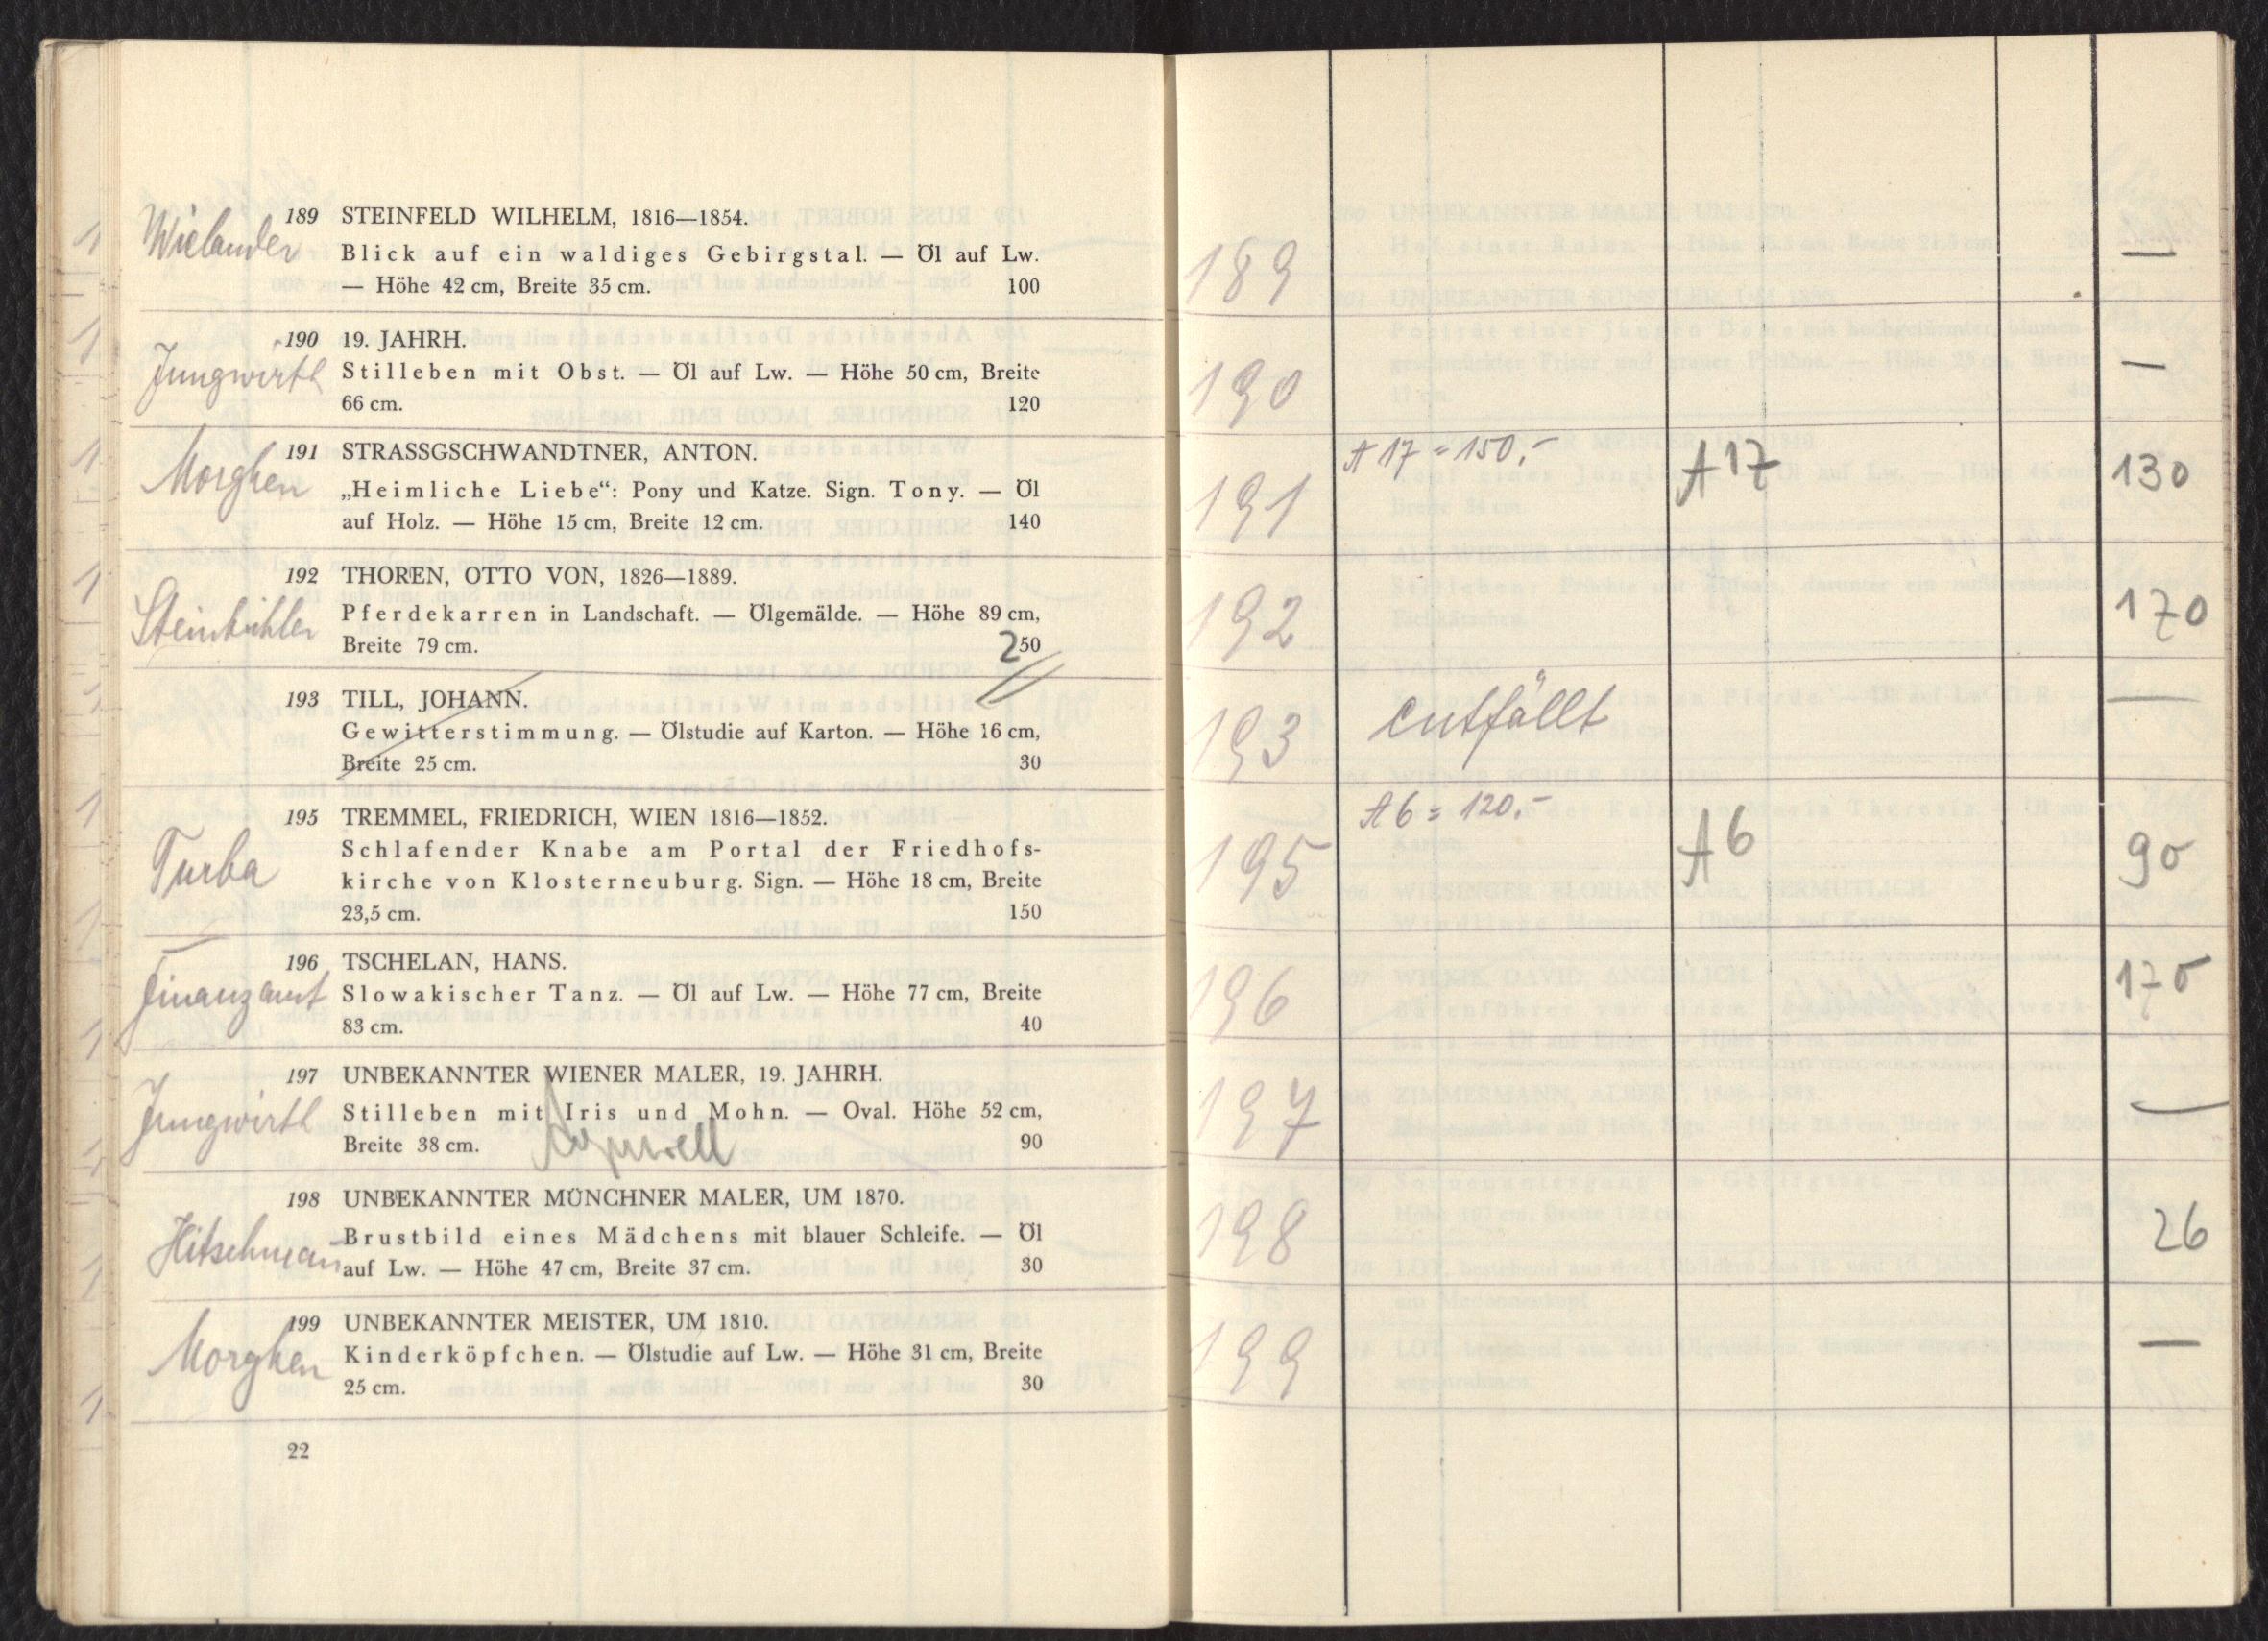 Wielander
189 STEINFELD WILHELM, 1816—1854.
Blick auf ein waldiges Gebirgstal. — Öl auf Lw.
— Höhe 42 cm, Breite 35 cm. 100
Jungwirth
190 19. JAHRH.
Stilleben mit Obst. — Öl auf Lw. — Höhe 50 cm, Breite
66 cm. 120
Morghen
191 STRASSGSCHWANDTNER, ANTON.
„Heimliche Liebe“: Pony und Katze. Sign. Tony. — Öl
auf Holz. — Höhe 15 cm, Breite 12 cm. 140
Steinbühler
192 THOREN, OTTO VON, 1826—1889.
Pferdekarren in Landschaft. — Ölgemälde. — Höhe 89 cm,
Breite 79 cm. 250
193 TILL, JOHANN.
Gewitterstimmung. — Ölstudie auf Karton. — Höhe 16 cm,
Breite 25 cm. 30
Turba
195 TREMMEL, FRIEDRICH, WIEN 1816—1852.
Schlafender Knabe am Portal der Friedhofs-
kirche von Klosterneuburg. Sign. — Höhe 18 cm, Breite
23,5 cm. 150
Finanzamt
196 TSCHELAN, HANS.
Slowakischer Tanz. — Öl auf Lw. — Höhe 77 cm, Breite
83 cm. 40
Jungwirth
197 UNBEKANNTER WIENER MALER, 19. JAHRH.
Stilleben mit Iris und Mohn. — Oval. Höhe 52 cm,
Breite 38 cm. Aquarell 90
Hitschman
198 UNBEKANNTER MÜNCHNER MALER, UM 1870.
Brustbild eines Mädchens mit blauer Schleife. — Öl
auf Lw. — Höhe 47 cm, Breite 37 cm. 30
Morghen
199 UNBEKANNTER MEISTER, UM 1810.
Kinderköpfchen. — Ölstudie auf Lw. — Höhe 31 cm, Breite
25 cm. 30
22
189 —
190 —
191 A 17 = 150.- A 17 130
192 170
193 entfällt —
195 A 6 = 120.- A 6 90
196 170
197 —
198 26
199 —